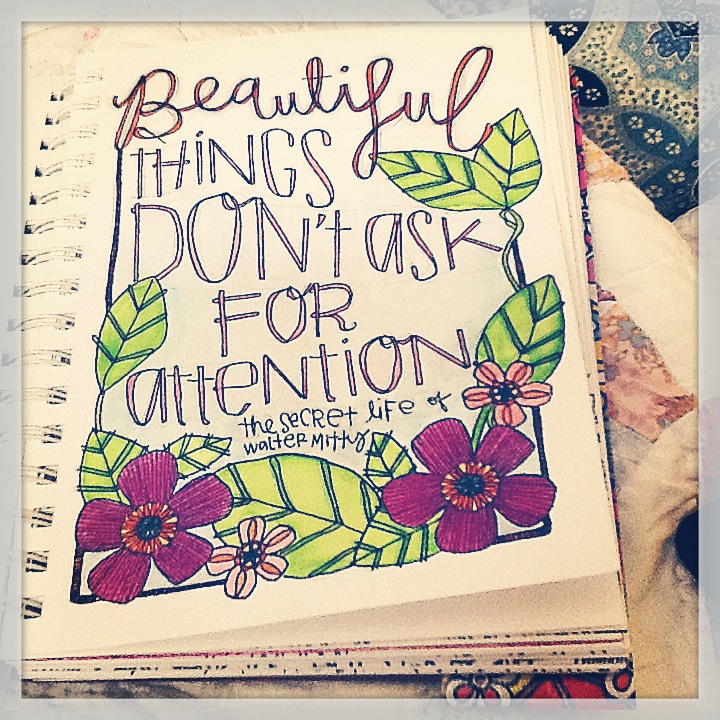 Beautiful
THiNGS
DON't ask
FOR
attention
the SECRET Life of
WALTER Mitty